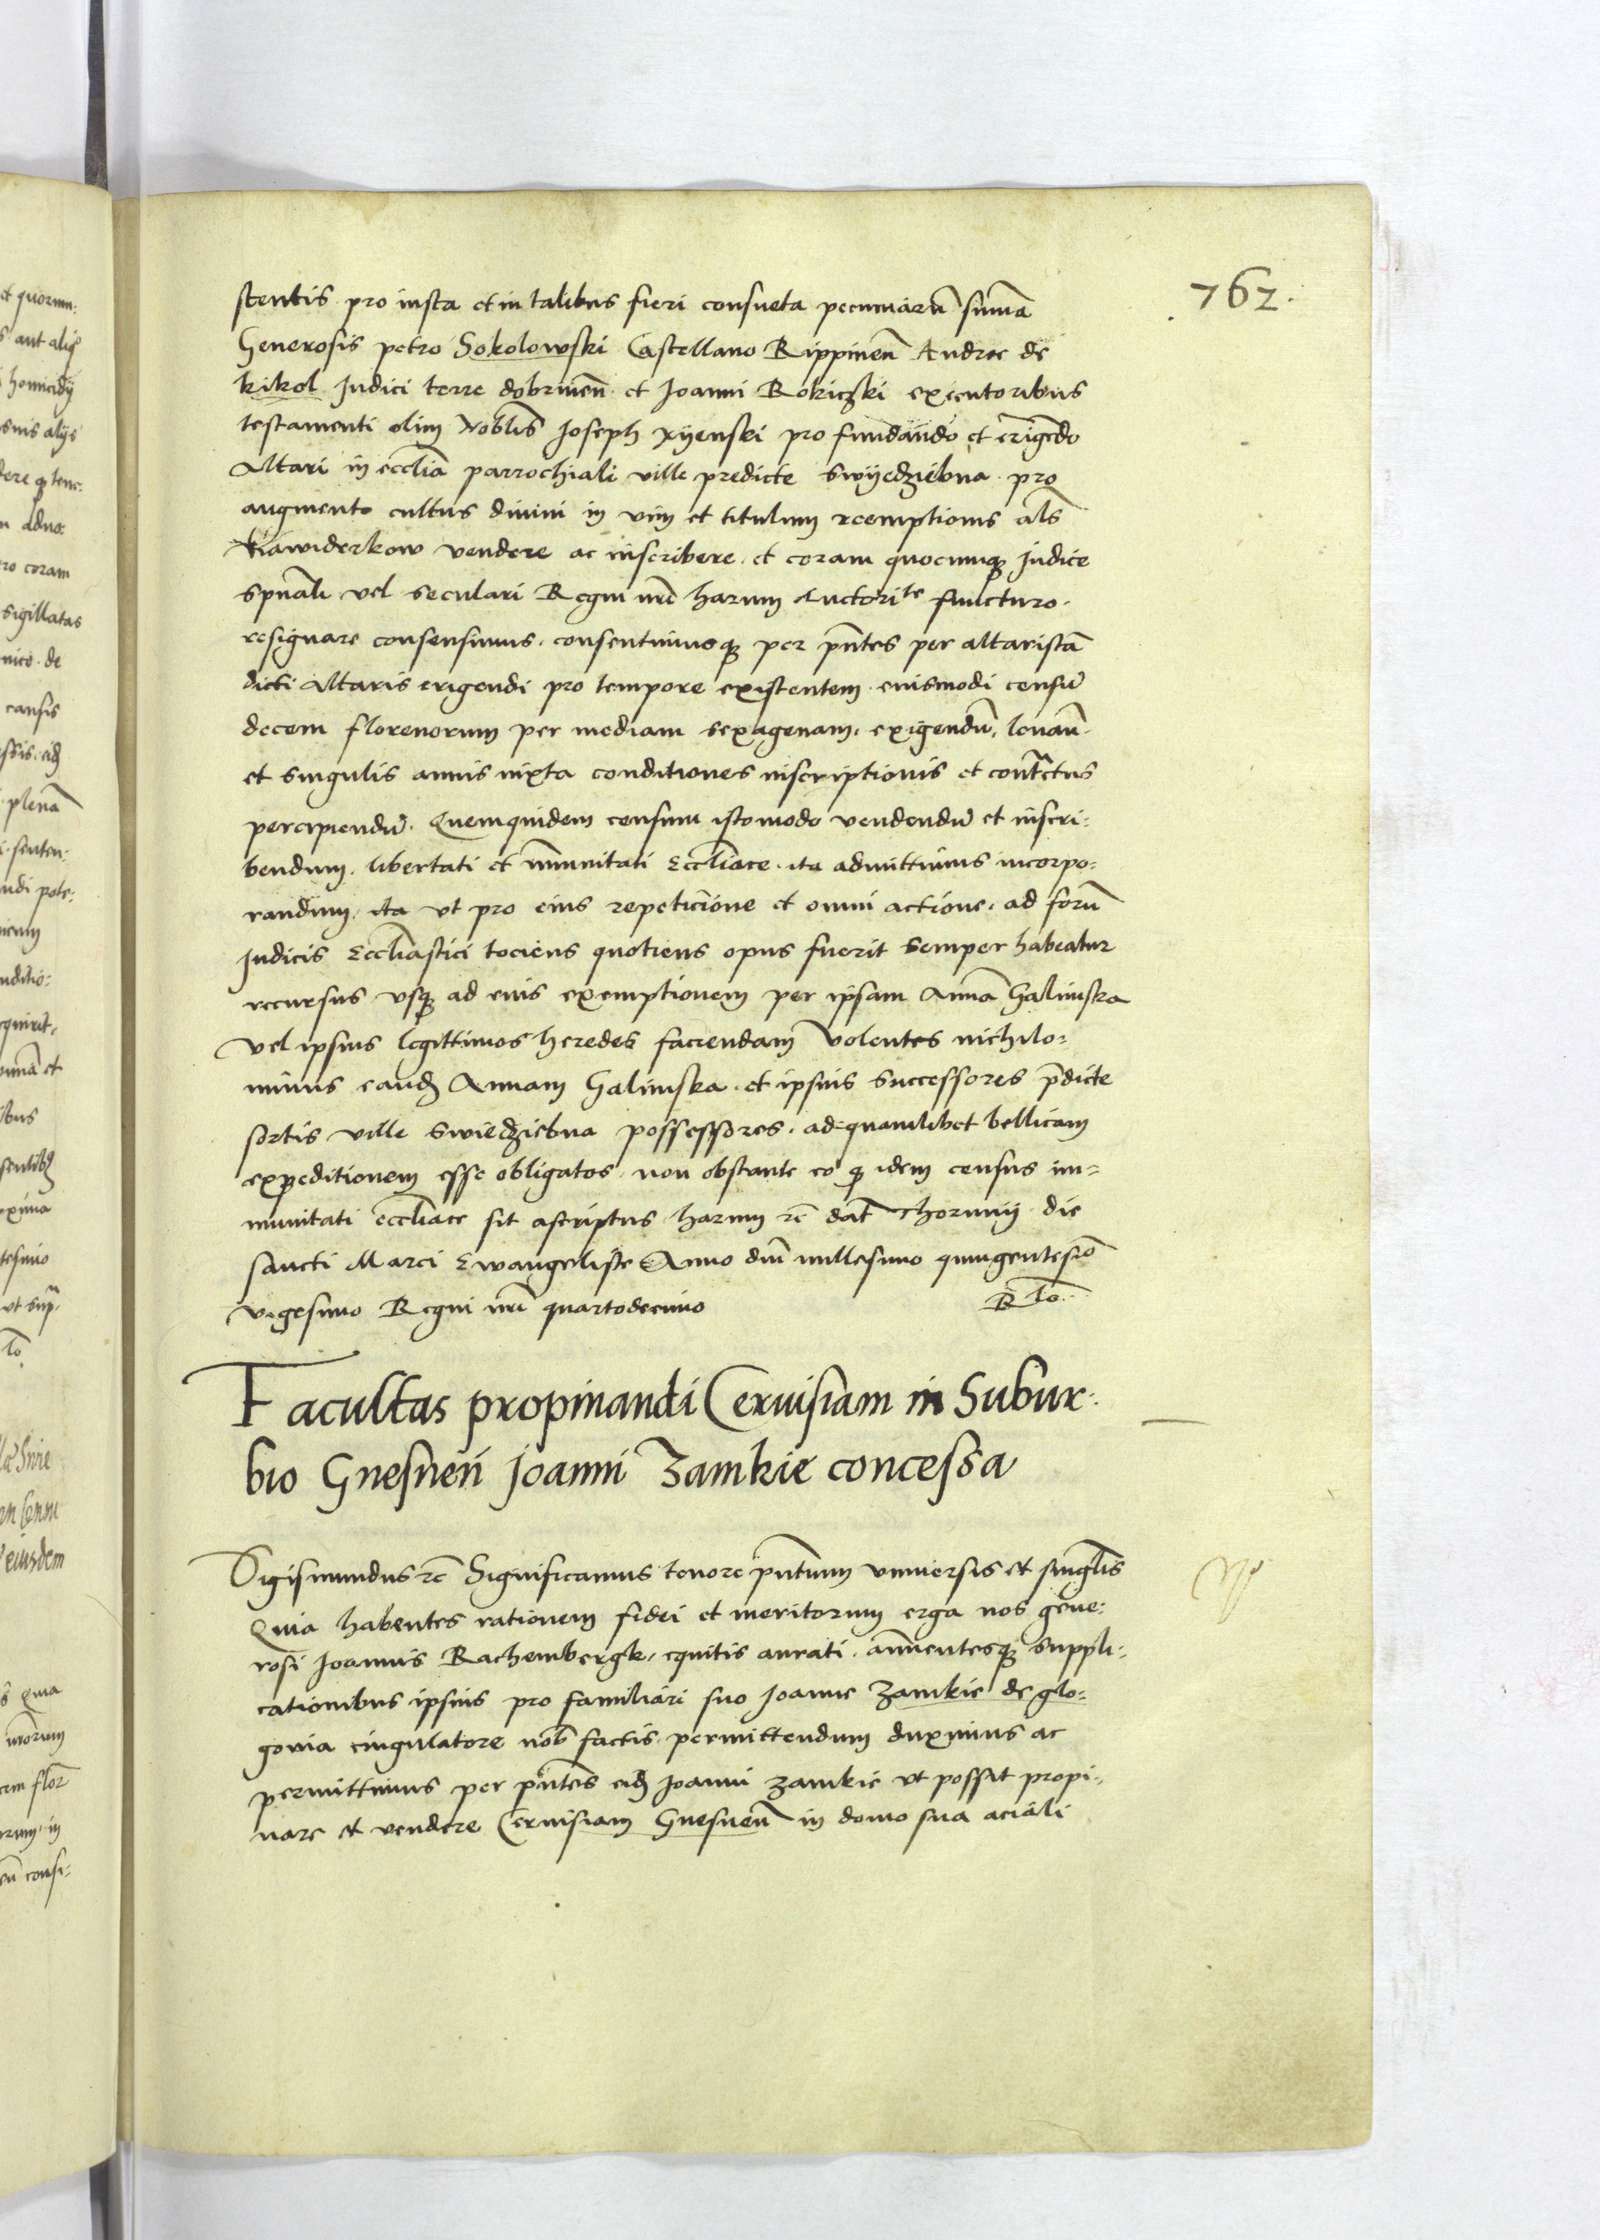 762.
stentis pro iusta et in talibus fieri consueta pecuniarũ sum̃a
Generosis petro Sokolowski Castellano Rippineñ Andree de
kikol Iudici terre dobrineñ et Ioanni Rokiczki executoribus
testamenti olim Nobl̃is Ioseph xijenski pro fundando et erigẽdo
Altari in eccl̃ia parrochiali ville predicte swijedziebna pro
augmento cultus diuini in vim et titulum reemptionis al̃s
Nawiderkow vendere ac inscribere et coram quocumqꝫ Iudice
sp̃uali vel seculari Regni nr̃i harum Auctorite functuro
resignare consensimus consentimusqꝫ per p̃ntes per altaristã
dicti Altaris erigendi pro tempore existentem euismodi censũ
decem florenorum per mediam sexagenam exigendũ leuañ
et singulis annis iuxta conditiones inscriptionis et contractus
percipiendũ. Quemquidem censum istomodo vendendũ et inscri:
bendum libertati et im̃unitati Eccl̃iace ita admittimus incorpo:
randum ita vt pro eius repeticione et omni actione ad forũ
Iudicis Eccl̃iastici tociens quotiens opus fuerit semper habeatur
recursus vsqꝫ ad euis exemptionem per ipsam Annã Galinska
vel ipsius legittimos heredes faciendam Volentes nichilo:
minus eandẽ Annam Galinska et ipsius successores p̃dicte
sortis ville swiedziebna possessores ad quamlibet bellicam
expeditionem esse obligatos non obstante eo ꝙ idem census im:
munitati eccl̃iace sit ascriptus harum rẽ dat̃ Thorunij die
sancti Marci Ewangeliste Anno dni millesimo quingentesiõ
vigesimo Regni nr̃i quartodecimo R to.
Facultas propinandi Ceruisiam in Subur:
bio Gnesneñ Joanni Zamkie concessa
Sigismundus rẽ Significamus tenore p̃ntium vniuersis et singlis
Quia habentes rationem fidei et meritorum erga nos gene:
rosi Ioannis Rachembergk equitis aurati annuentesqꝫ suppli:
cationibus ipsius pro familiari suo Ioanne Zamkie de glo:
gouia cingulatore nob̃ factis permittendum duximus ac
permittimus per p̃ntes eidẽ Ioanni zamkie vt possit propi:
nare et vendere Ceruisiam Gnesneñ in domo sua aciali